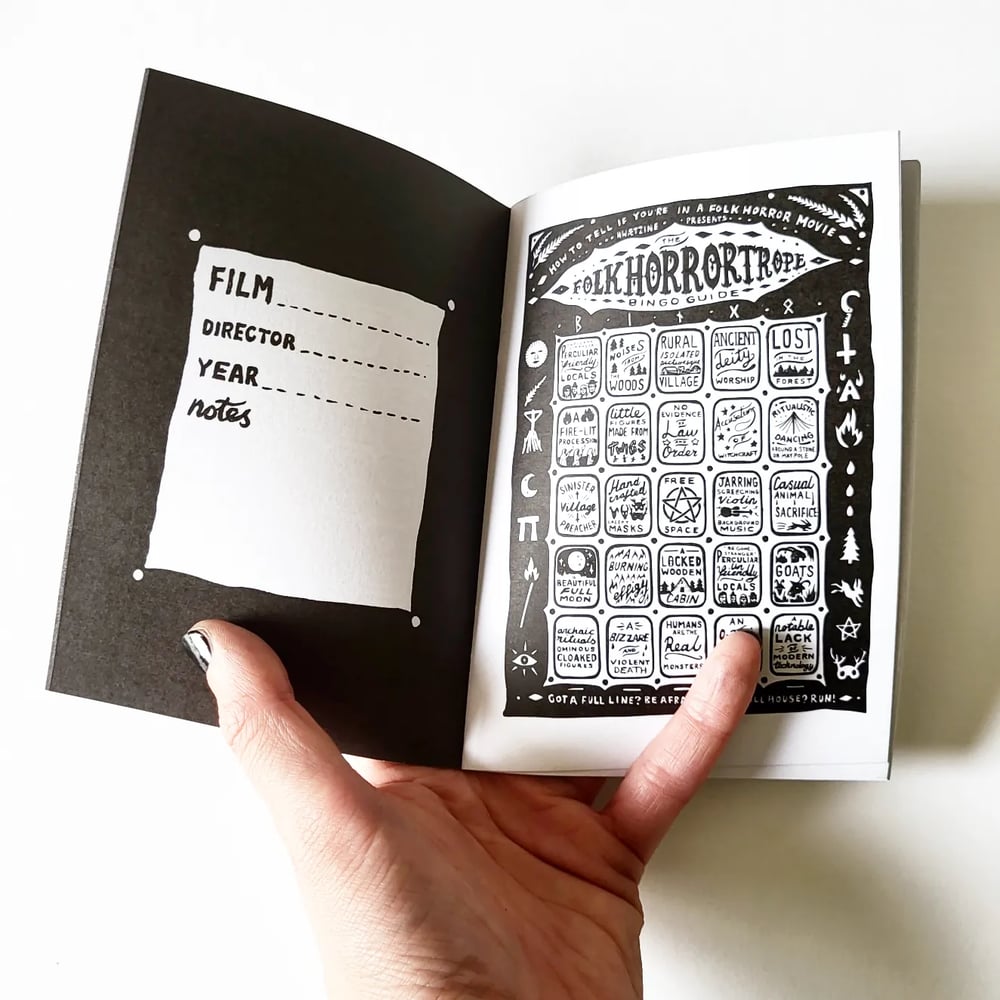 FILM
DIRECTOR
YEAR
notes
HOW TO TELL IF YOU'RE IN A FOLK HORROR MOVIE
HWÆTZINE PRESENTS
THE
FOLK HORROR TROPE
BINGO GUIDE
PECULIAR
friendly
LOCALS
NOISES
FROM
THE
WOODS
RURAL
ISOLATED
VILLAGE
ANCIENT
deity
WORSHIP
LOST
IN THE
FOREST
A
FIRE-LIT
PROCESSION
little
FIGURES
MADE FROM
TWIGS
NO
EVIDENCE
OF
Law
OR
Order
Accusations
OF
WITCHCRAFT
RITUALISTIC
DANCING
AROUND A STONE
OR MAYPOLE
SINISTER
Village
PREACHER
Hand
crafted
MASKS
FREE
SPACE
JARRING
SCREECHING
Violin
BACKGROUND
MUSIC
Casual
ANIMAL
SACRIFICE
A
BEAUTIFUL
FULL
MOON
BURNING
effigy
A
LOCKED
WOODEN
CABIN
PECULIAR
Un
friendly
LOCALS
GOATS
archaic
rituals
OMINOUS
CLOAKED
FIGURES
A
BIZZARE
AND
VIOLENT
DEATH
HUMANS
ARE THE
Real
MONSTERS
AN
A
notable
LACK
OF
MODERN
technology
GOT A FULL LINE? BE AFRA LL HOUSE? RUN!